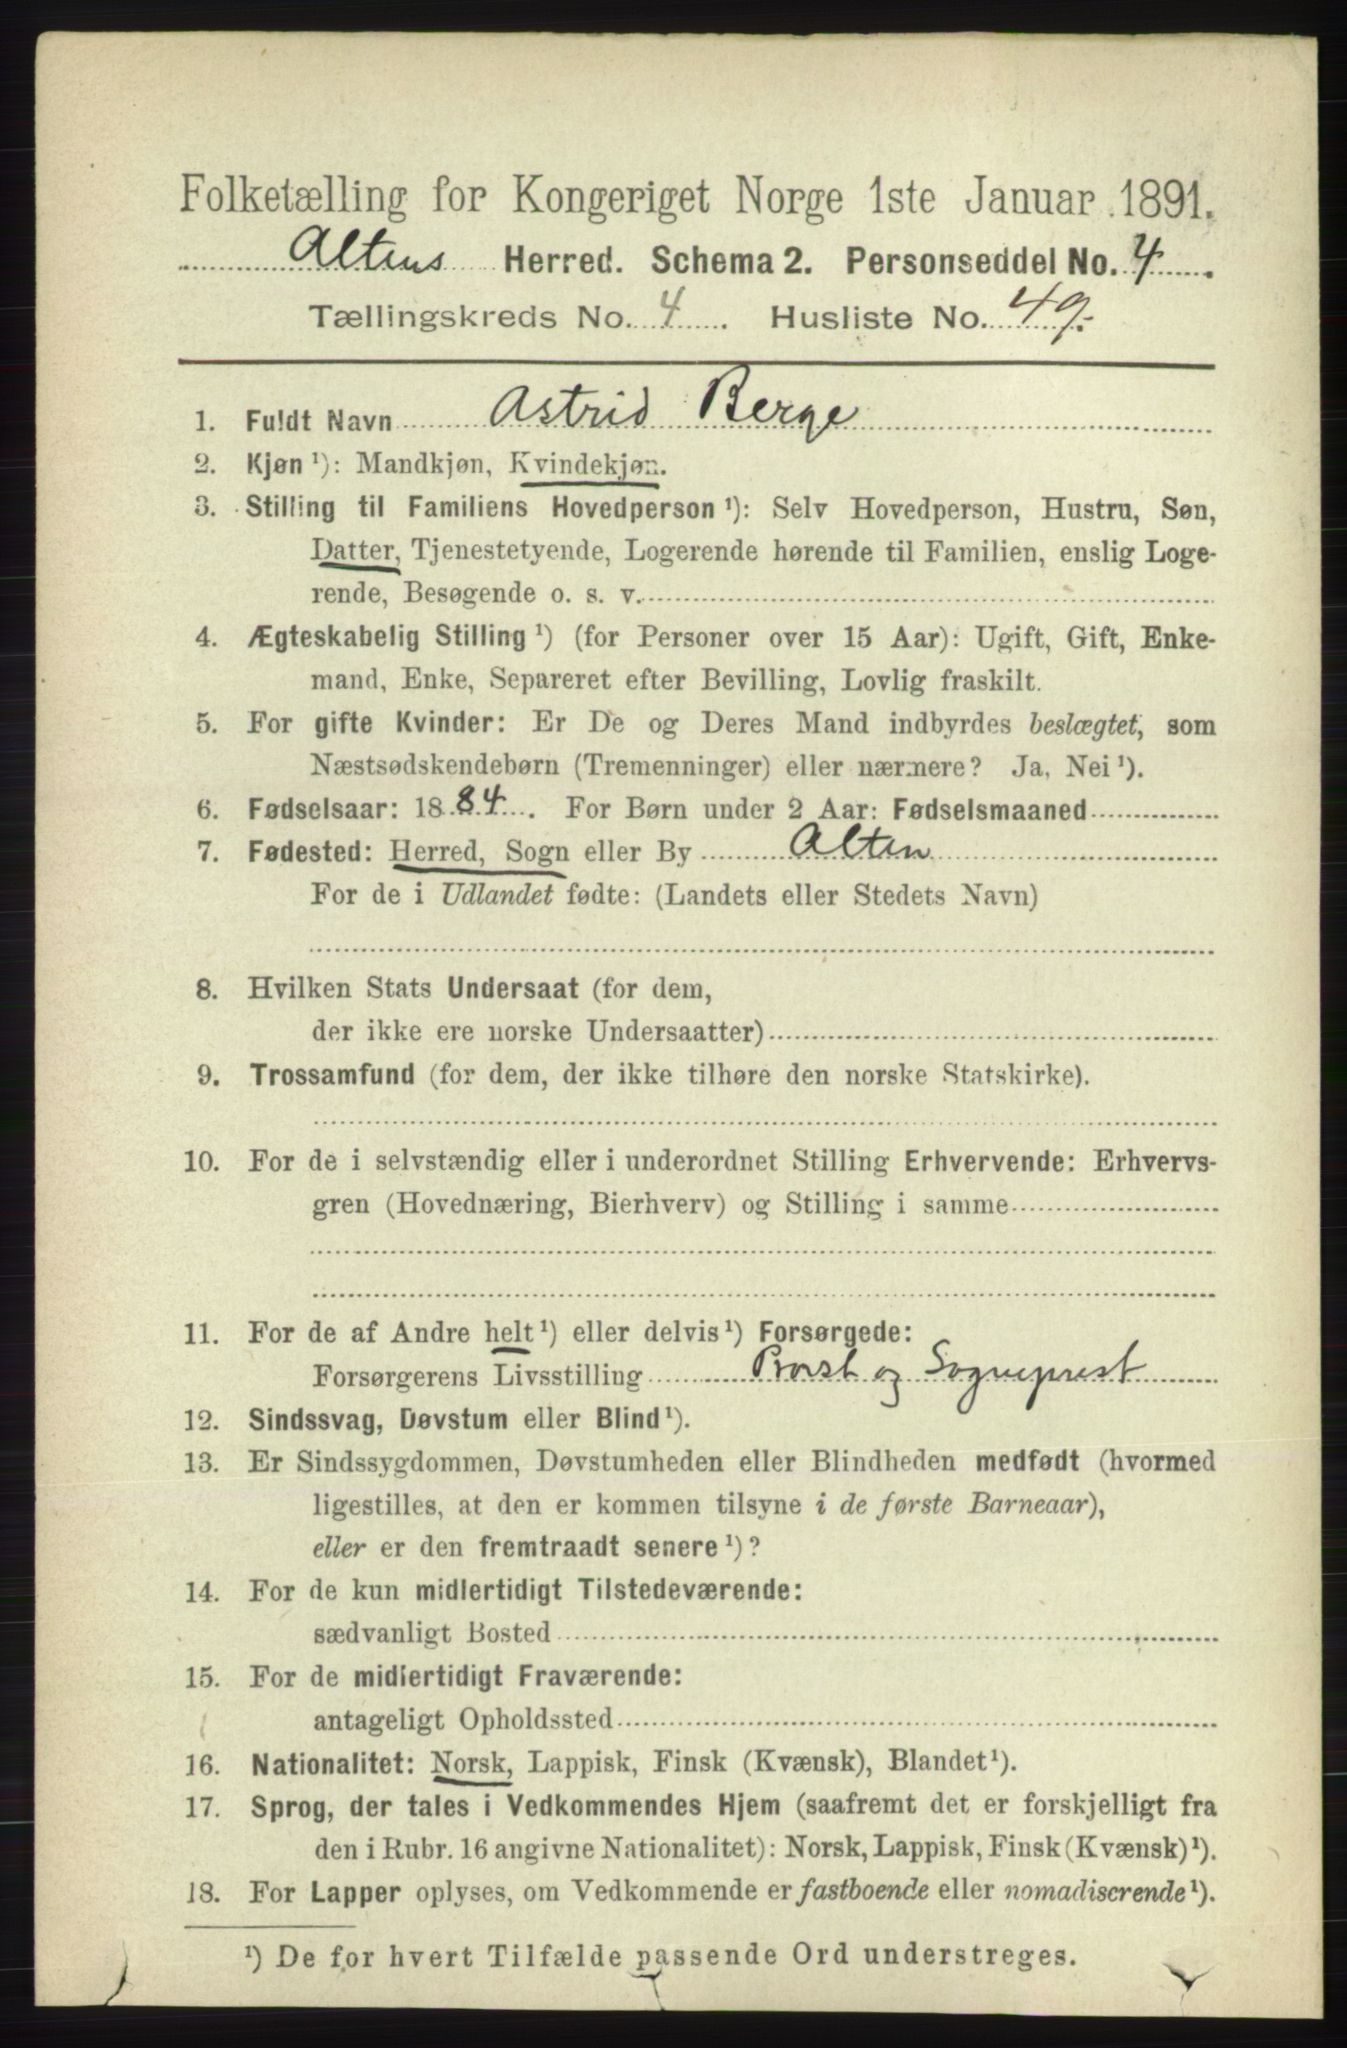 Folketælling for Kongeriget Norge 1ste Januar 1891.
Altens Herred. Schema 2. Personseddel No. 4
Tællingskreds No. 4 Husliste No. 49.
1. Fuldt Navn Astrid Berge
2. Kjøn ¹): Mandkjøn, Kvindekjøn.
3. Stilling til Familiens Hovedperson ¹): Selv Hovedperson, Hustru, Søn,
Datter, Tjenestetyende, Logerende hørende til Familien, enslig Loge-
rende, Besøgende o. s. v.
4. Ægteskabelig Stilling ¹) (for Personer over 15 Aar): Ugift, Gift, Enke-
mand, Enke, Separeret efter Bevilling, Lovlig fraskilt.
5. For gifte Kvinder: Er De og Deres Mand indbyrdes beslægtet, som
Næstsødskendebørn (Tremenninger) eller nærmere? Ja, Nei ¹).
6. Fødselsaar: 1884. For Børn under 2 Aar: Fødselsmaaned
7. Fødested: Herred, Sogn eller By Alten
For de i Udlandet fødte: (Landets eller Stedets Navn)
8. Hvilken Stats Undersaat (for dem,
der ikke ere norske Undersaatter)
9. Trossamfund (for dem, der ikke tilhøre den norske Statskirke).
10. For de i selvstændig eller i underordnet Stilling Erhvervende: Erhvervs-
gren (Hovednæring, Bierhverv) og Stilling i samme
11. For de af Andre helt ¹) eller delvis ¹) Forsørgede:
Forsørgerens Livsstilling Provst og Sogneprest
12. Sindssvag, Døvstum eller Blind ¹).
13. Er Sindssygdommen, Døvstumheden eller Blindheden medfødt (hvormed
ligestilles, at den er kommen tilsyne i de første Barneaar),
eller er den fremtraadt senere ¹)?
14. For de kun midlertidigt Tilstedeværende:
sædvanligt Bosted
15. For de midlertidigt Fraværende:
antageligt Opholdssted
16. Nationalitet: Norsk, Lappisk, Finsk (Kvænsk), Blandet ¹).
17. Sprog, der tales i Vedkommendes Hjem (saafremt det er forskjelligt fra
den i Rubr. 16 angivne Nationalitet): Norsk, Lappisk, Finsk (Kvænsk) ¹).
18. For Lapper oplyses, om Vedkommende er fastboende eller nomadiserende ¹).
¹) De for hvert Tilfælde passende Ord understreges.